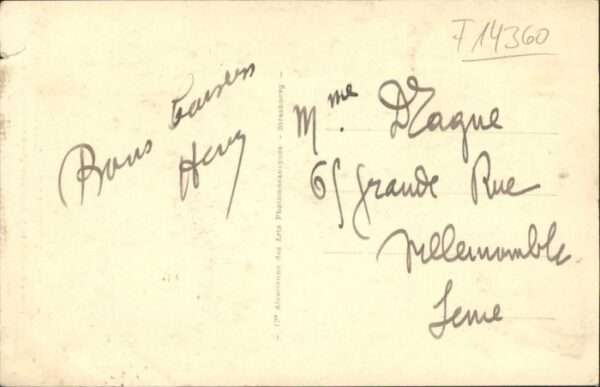 F14360
Bons baisers
Henry
Mme.
65 Grande Rue
Villemomble
Seine
— Cie Alsacienne des Arts Photomécaniques - Strasbourg —